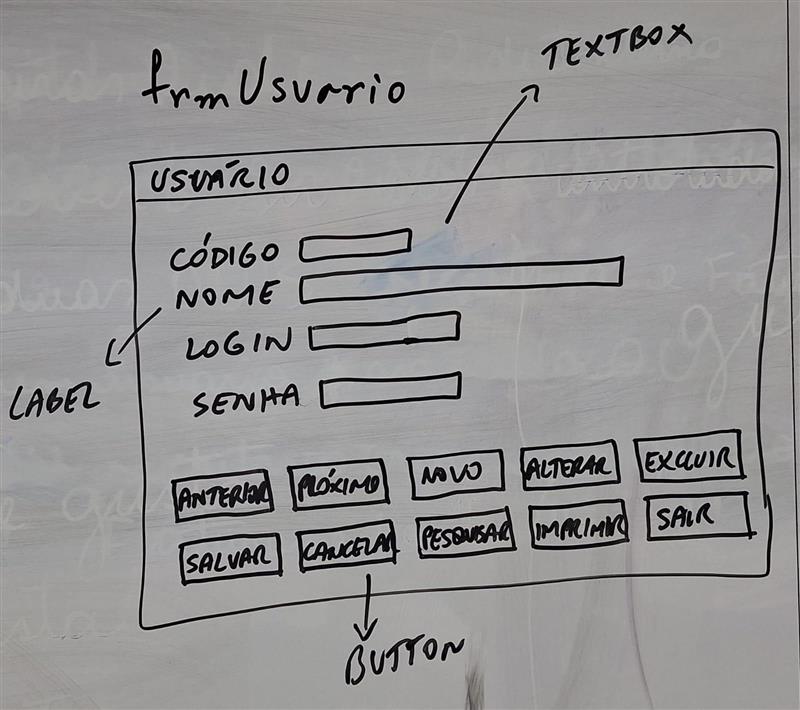 TEXTBOX
frmUsuario
USUÁRIO
CÓDIGO
NOME
LOGIN
LABEL
SENHA
ANTERIOR PRÓXIMO NOVO ALTERAR EXCLUIR
SALVAR CANCELAR PESQUISAR IMPRIMIR SAIR
BUTTON